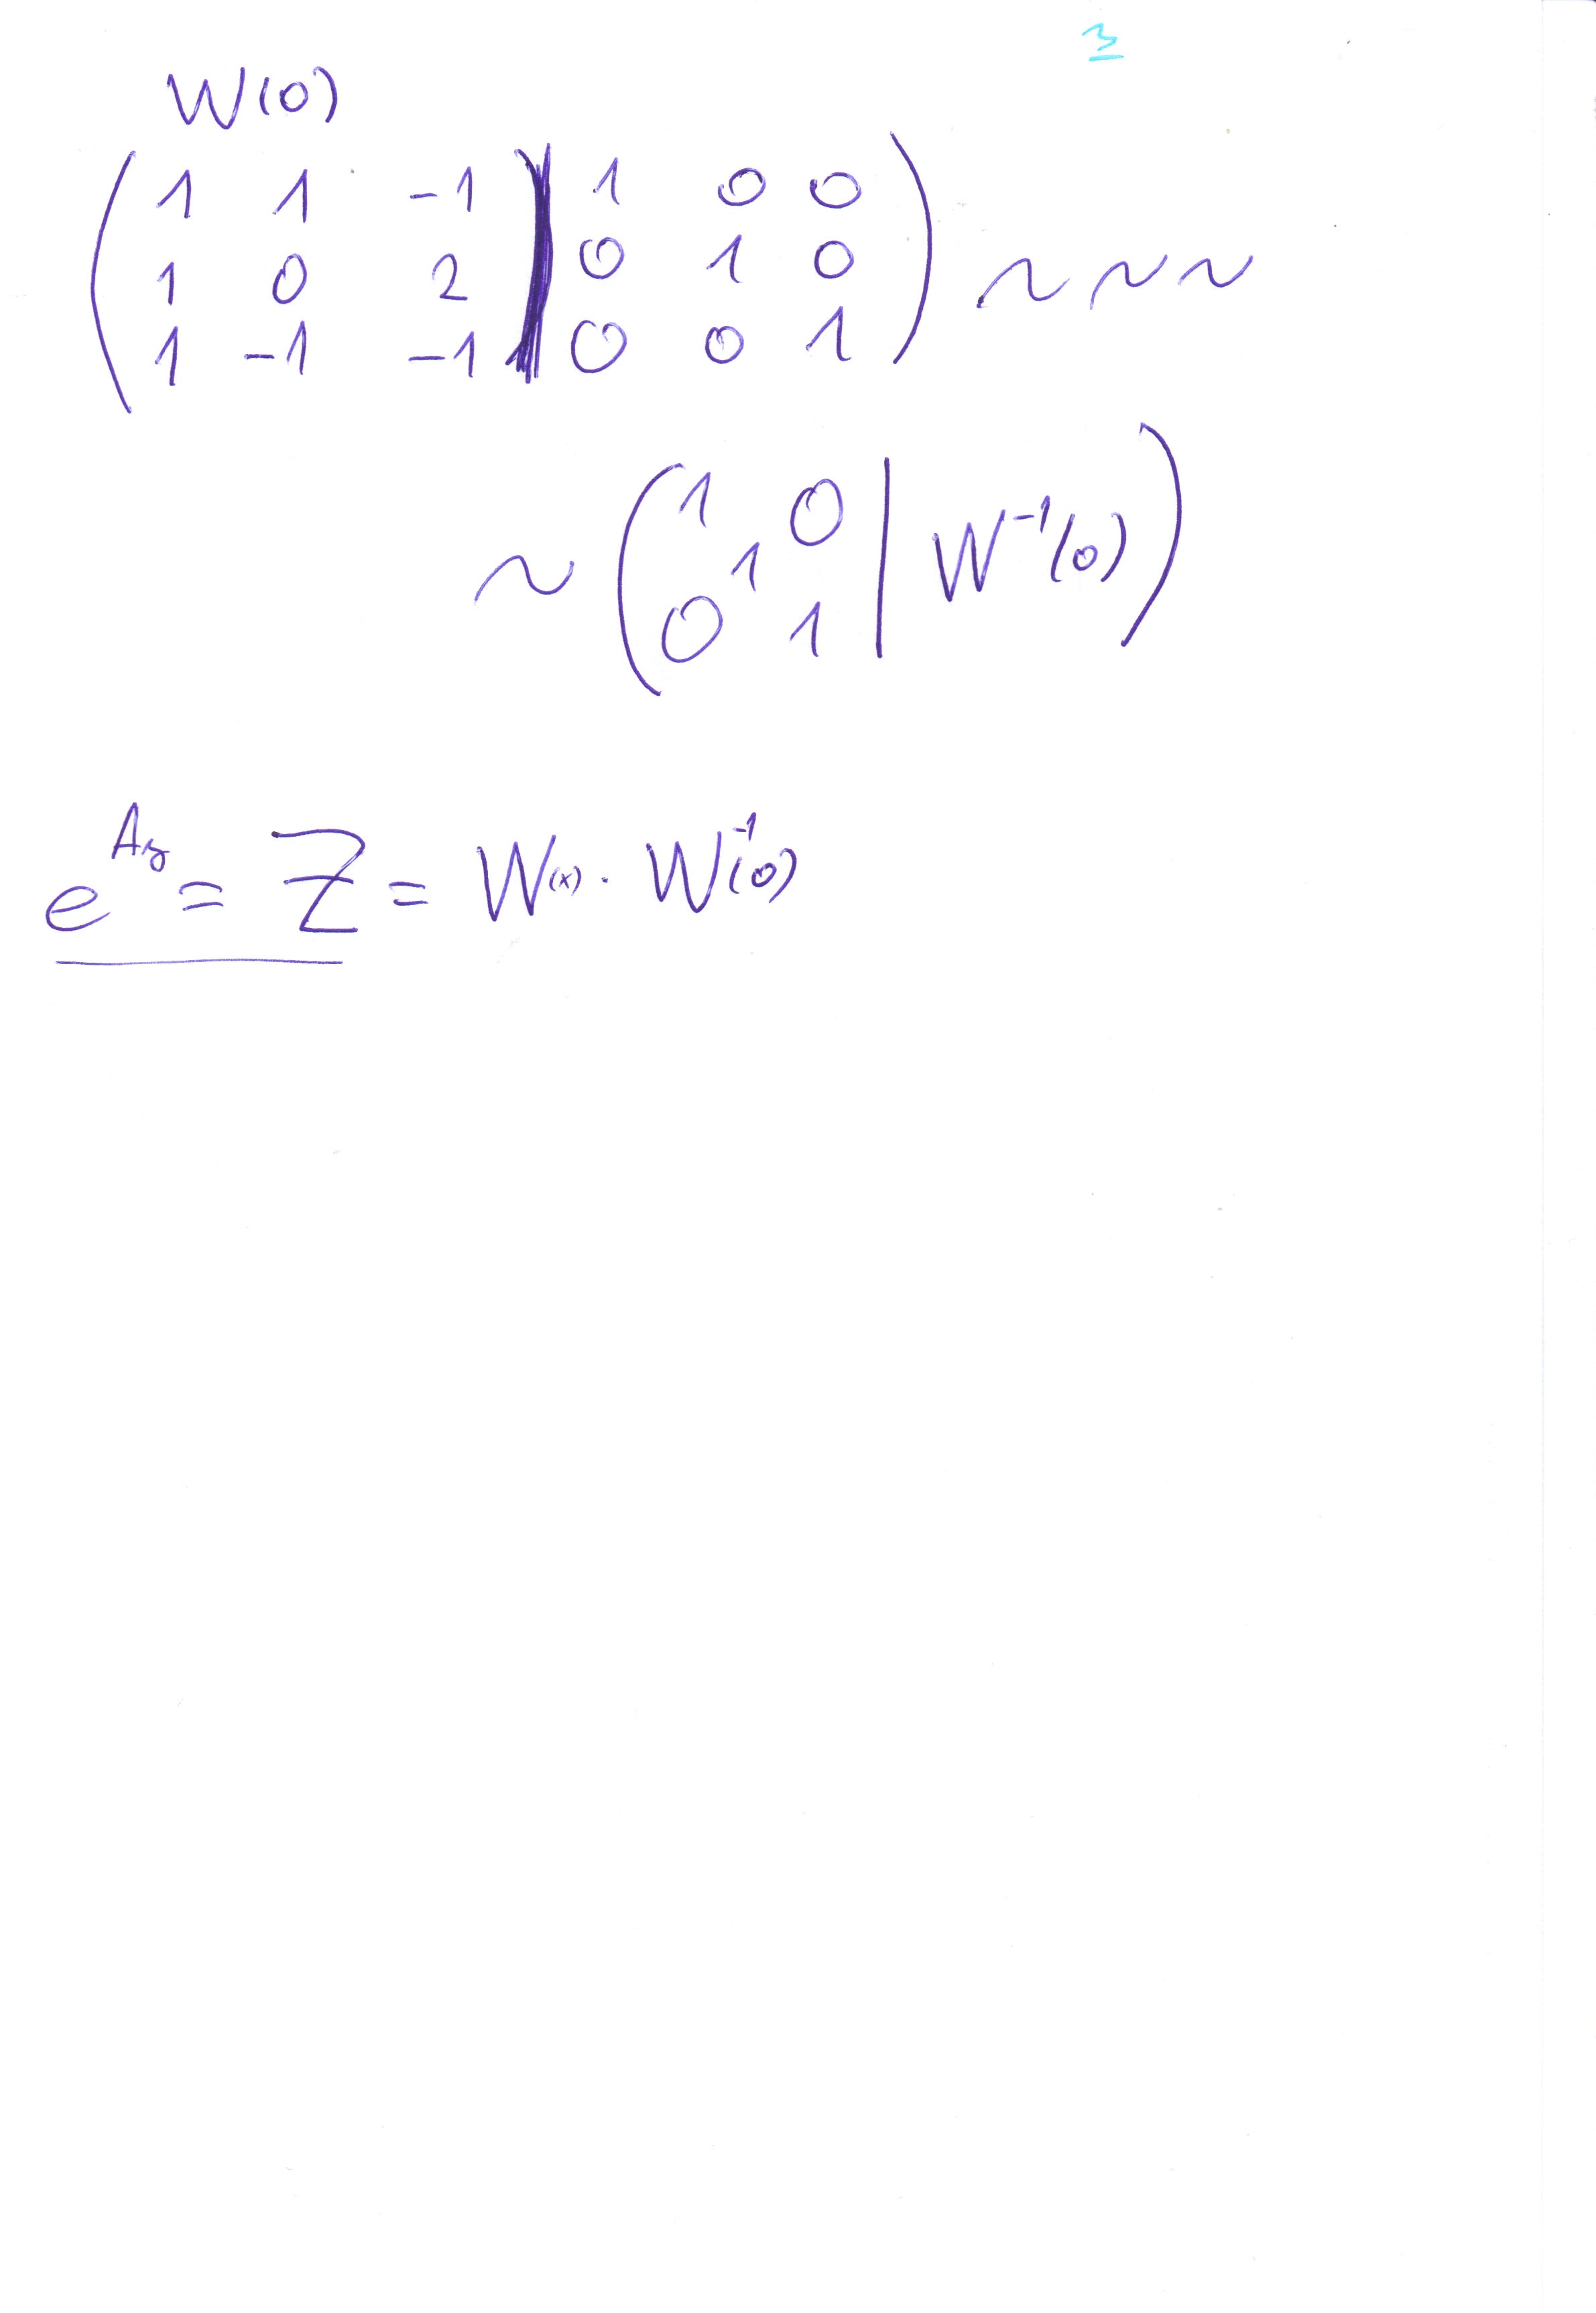 3
W(0)
1 1 -1 | 1 0 0
1 0 2 | 0 1 0
1 -1 -1 | 0 0 1
~ ~ ~
~ ( 1 0
1 | W⁻¹(0) )
0 1
= Z = W(x) · W⁻¹(0)